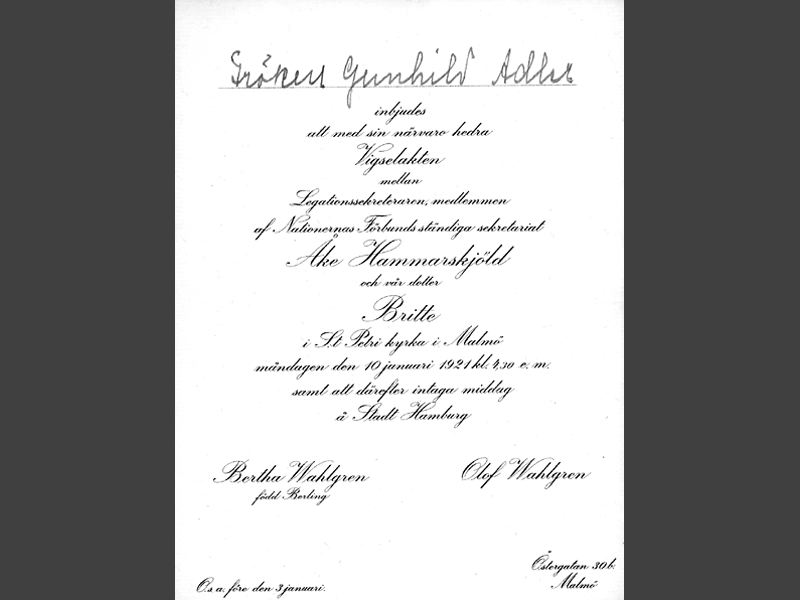 Fröken Gunhild Adler
inbjudes
att med sin närvaro hedra
Vigselakten
mellan
Legationssekreteraren, medlemmen
af Nationernas Förbunds ständiga sekretariat
Åke Hammarskjöld
och vår dotter
Britte
i S:t Petri kyrka i Malmö
måndagen den 10 januari 1921 kl. 4,30 e. m.
samt att därefter intaga middag
å Stadt Hamburg
Bertha Wahlgren
född Berling
Olof Wahlgren
Östergatan 30 b.
Malmö
O. s. a. före den 3 januari.